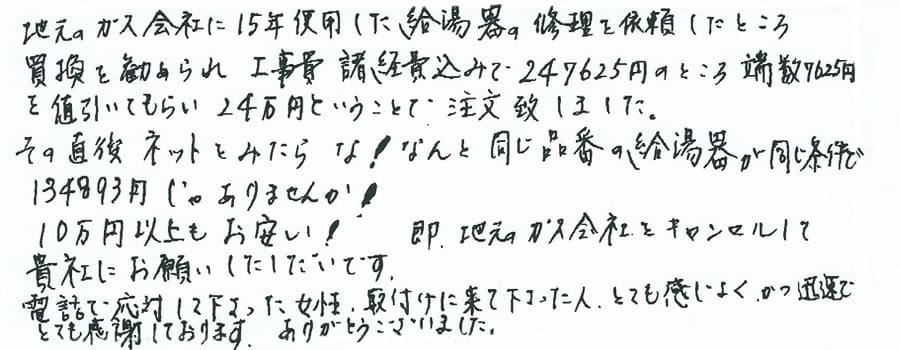 地元のガス会社に15年使用した給湯器の修理を依頼したところ
買換を勧められ 工事費 諸経費込みで247625円のところ端数7625円
を値引いてもらい 24万円ということで注文致しました。
その直後ネットをみたら な！なんと同じ品番の給湯器が同じ条件で
134893円じゃありませんか！
10万円以上もお安い！ 即、地元のガス会社をキャンセルして
貴社にお願いしたしだいです。
電話で応対して下さった女性、取付けに来て下さった人、とても感じよく、かつ迅速で
とても感謝しております。ありがとうございました。